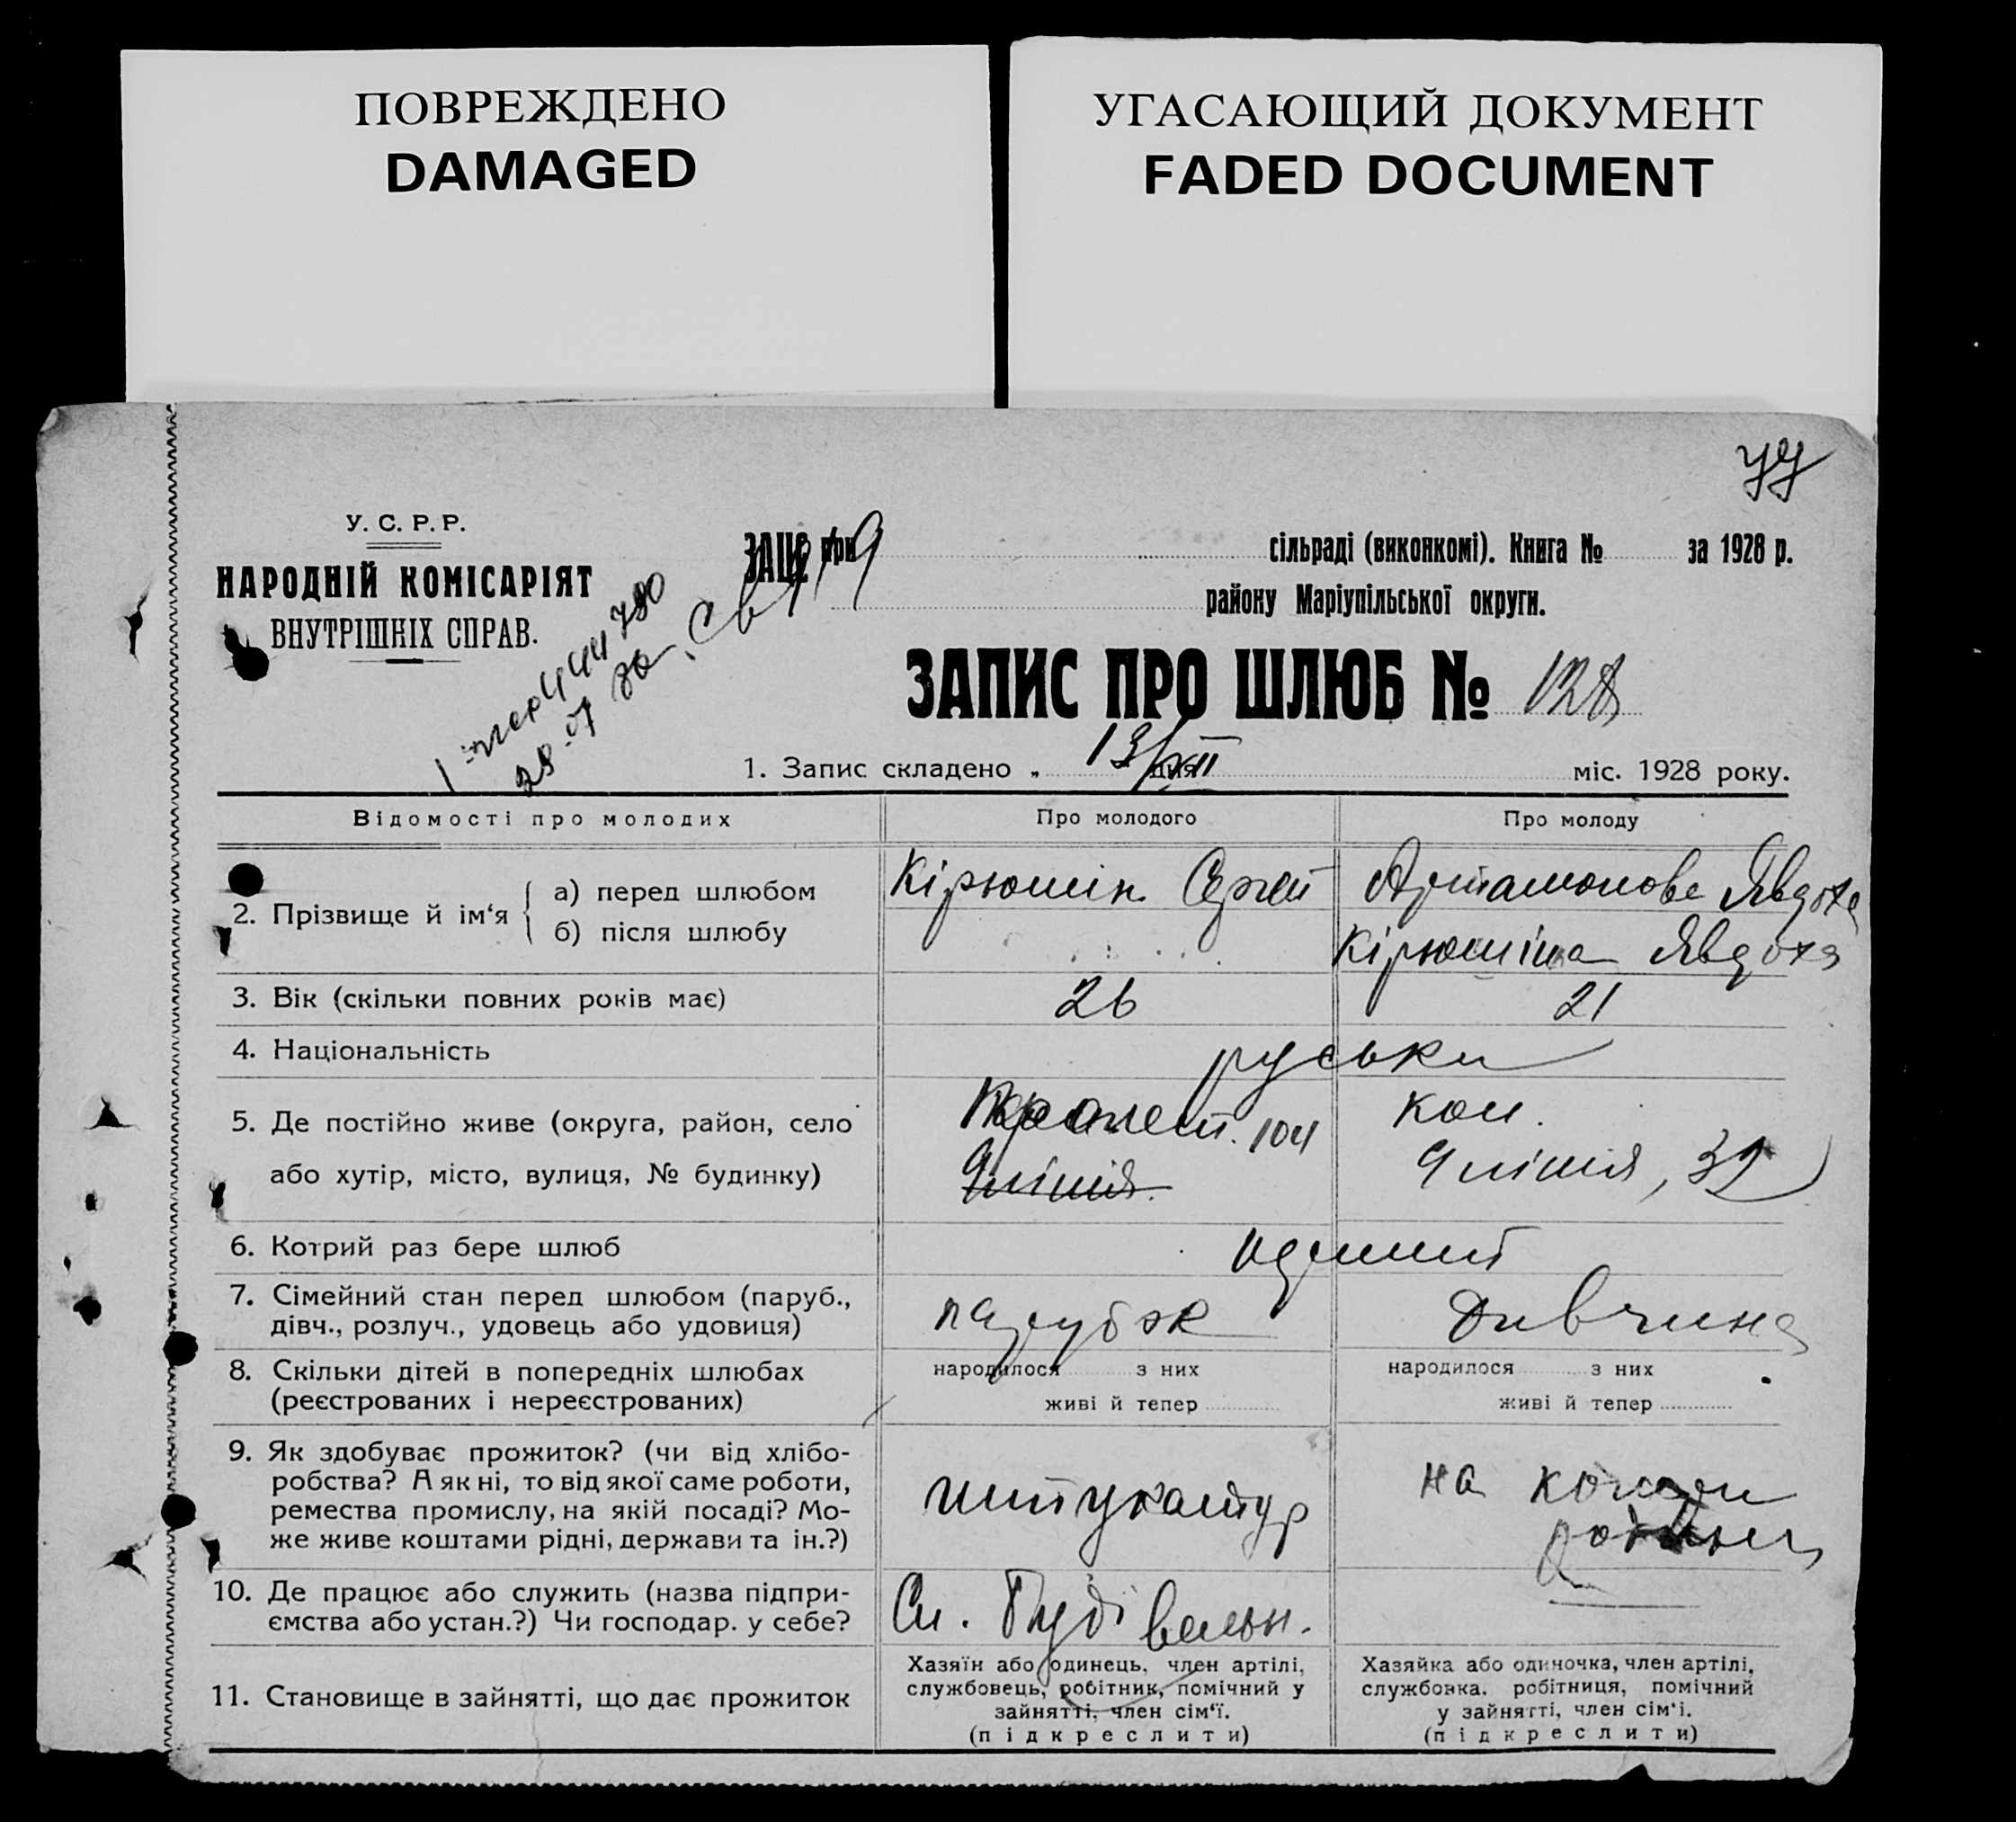 ПОВРЕЖДЕНО
DAMAGED
УГАСАЮЩИЙ ДОКУМЕНТ
FADED DOCUMENT
У. С. Р. Р.
НАРОДНІЙ КОМІСАРІЯТ
ВНУТРІШНІХ СПРАВ.
при сільраді (виконкомі). Книга № за 1928 р.
району Маріупільської округи.
ЗАПИС ПРО ШЛЮБ № 128
1. Запис складено „ 13/XII дня міс. 1928 року.
Відомості про молодих Про молодого Про молоду
2. Прізвище й ім‘я
а) перед шлюбом Кірюшін Сергей Артамонова Явдоха
б) після шлюбу Кірюшіна Явдоха
3. Вік (скільки повних років має) 26 21
4. Національність руськи
5. Де постійно живе (округа, район, село 104 Кол.
або хутір, місто, вулиця, № будинку) 9 лінія 9 лінія, 32
6. Котрий раз бере шлюб
7. Сімейний стан перед шлюбом (паруб.,
дівч., розлуч., удовець або удовиця) парубок дивчина
8. Скільки дітей в попередніх шлюбах народилося з них народилося з них
(реєстрованих і нереєстрованих) живі й тепер живі й тепер
9. Як здобуває прожиток? (чи від хлібо-
робства? А як ні, то від якої саме роботи,
ремества промислу, на якій посаді? Мо-
же живе коштами рідні, держави та ін.?)
штукатур
на
10. Де працює або служить (назва підпри-
ємства або устан.?) Чи господар. у себе?
Будівельн.
11. Становище в зайнятті, що дає прожиток
Хазяїн або одинець, член артілі,
службовець, робітник, помічний у
зайнятті, член сім‘ї.
(підкреслити)
Хазяйка або одиночка, член артілі,
службовка. робітниця, помічний
у зайнятті, член сім‘і.
(підкреслити)